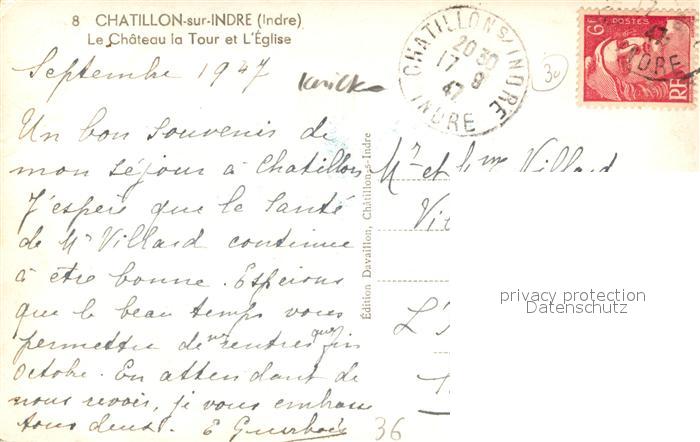 8 CHATILLON-sur-INDRE (Indre)
Le Château la Tour et L'Église
Septembre 1947
knick
Un bon souvenir de
mon séjour à Chatillon
J'espère que le santé
de Mr Villard continue
à être bonne. Espérons
que le beau temps vous
permettra de ne rentrer que fin
Octobre. En attendant de
nous revoir, je vous embrasse
tous deux. E
36
Édition Davaillon, Châtillon-s-Indre
CHATILLON S/INDRE
20 30
17 9
47
INDRE
30
6F POSTES
RF
47
INDRE
Mr et Mme Villard
privacy protection
Datenschutz